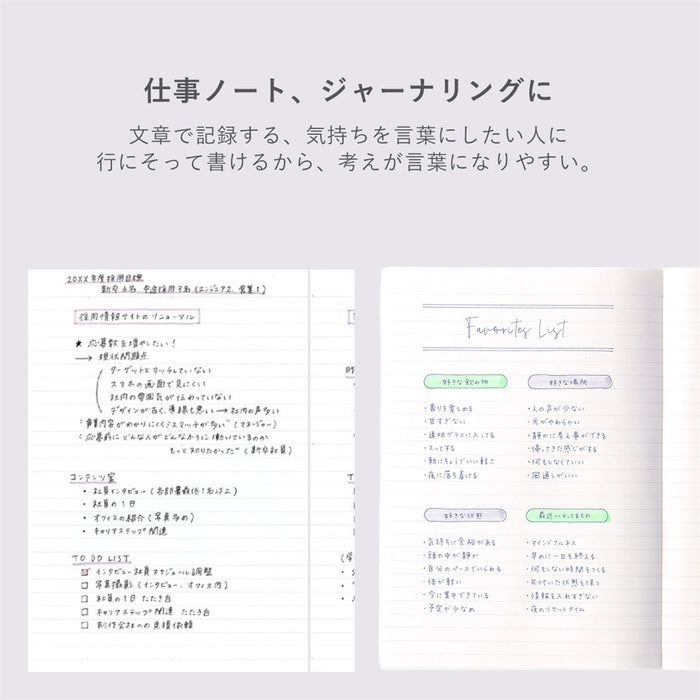 仕事ノート、ジャーナリングに
文章で記録する、気持ちを言葉にしたい人に
行にそって書けるから、考えが言葉になりやすい。
20XX年度採用目標
新卒6名 中途採用3名(エンジニア2、営業1)
採用情報サイトのリニューアル
★ 応募数を増やしたい!
→ 現状問題点
ターゲットとマッチしていない
スマホの画面で見にくい
社内の雰囲気が伝わっていない
デザインが古く、導線も悪い → 社内の声多い
"事業内容がわかりにくくミスマッチが多い"(マネージャー)
"応募前にどんな人がどんなふうに働いているのか
もっと知りたかった"(新卒社員)
コンテンツ案
・社員インタビュー(各部署最低1名以上)
・社員の1日
・オフィスの紹介(写真多め)
・キャリアステップ関連
TO DO LIST
☑ インタビュー社員スケジュール調整
□ 写真撮影(インタビュー、オフィス内)
□ 社員の1日 たたき台
□ キャリアステップ関連 たたき台
□ 制作会社への見積依頼
Favorites List
好きな飲み物
・香りを楽しめる
・甘すぎない
・透明グラスに入ってる
・スッとする
・朝にちょうどいい軽さ
・夜に落ち着ける
好きな場所
・人の声が少ない
・光がやわらかい
・静かに考え事ができる
・帰ってきた感じがする
・何もしなくていい
・風通しがいい
好きな状態
・気持ちに余裕がある
・頭の中が静か
・自分のペースでいられる
・体が軽い
・今に集中できている
・予定が少なめ
最近ハマってるもの
・マインドフルネス
・早めに一日を終える
・何もしない時間をつくる
・片付いた状態を保つ
・情報を入れすぎない
・夜のリセットタイム